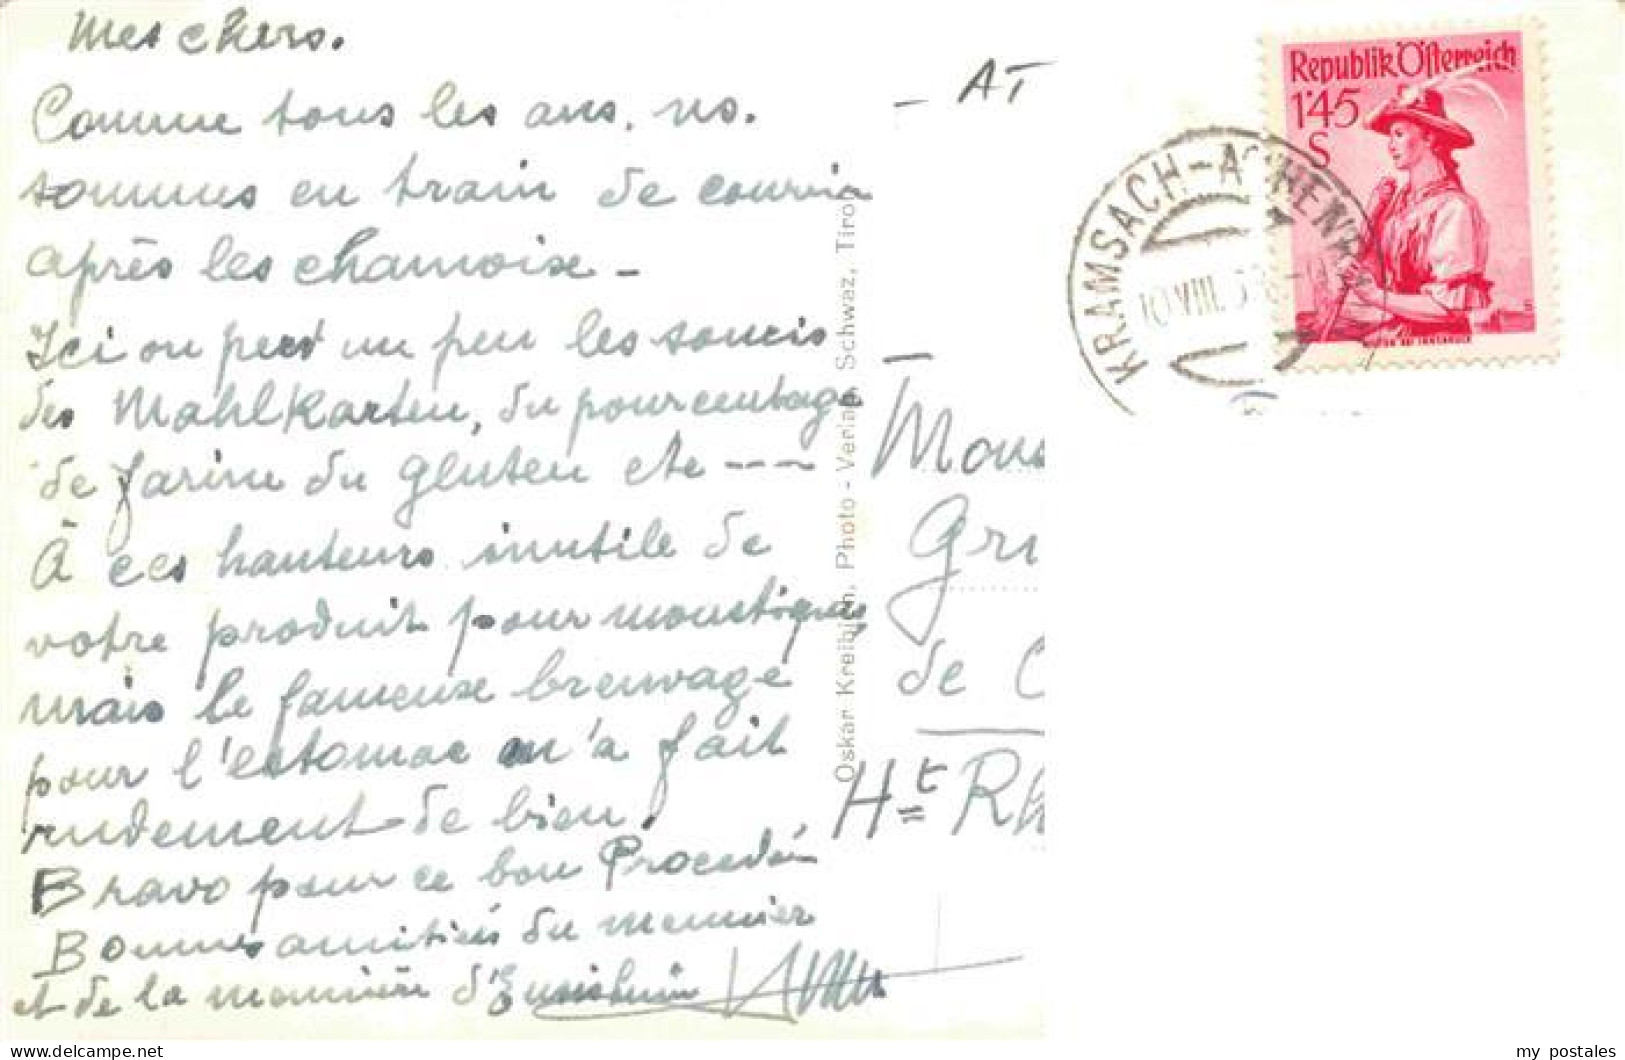 Mes chers.
Comme tous les ans. ns.
sommes en train de courir
après les chamoise -
Ici on perd un peu les soucis
des Mahlkarten, du pourcentage
de farine du gluten etc ---
À ces hauteurs inutile de
votre produit pour moustiques
mais le fameuse breuvage
pour l'estomac m'a fait
rudement de bien.
Bravo pour ce bon
Bonnes amitiés du meunier
et de la meunière d'Ensisheim
Oskar Kreibich, Photo - Verlag Schwaz, Tirol
- AT
Republik Österreich
1'45
S
KRAMSACH-ACHENRAIN
10 VIII. 5
Mons
Gri
de C
Ht Rh
my postales